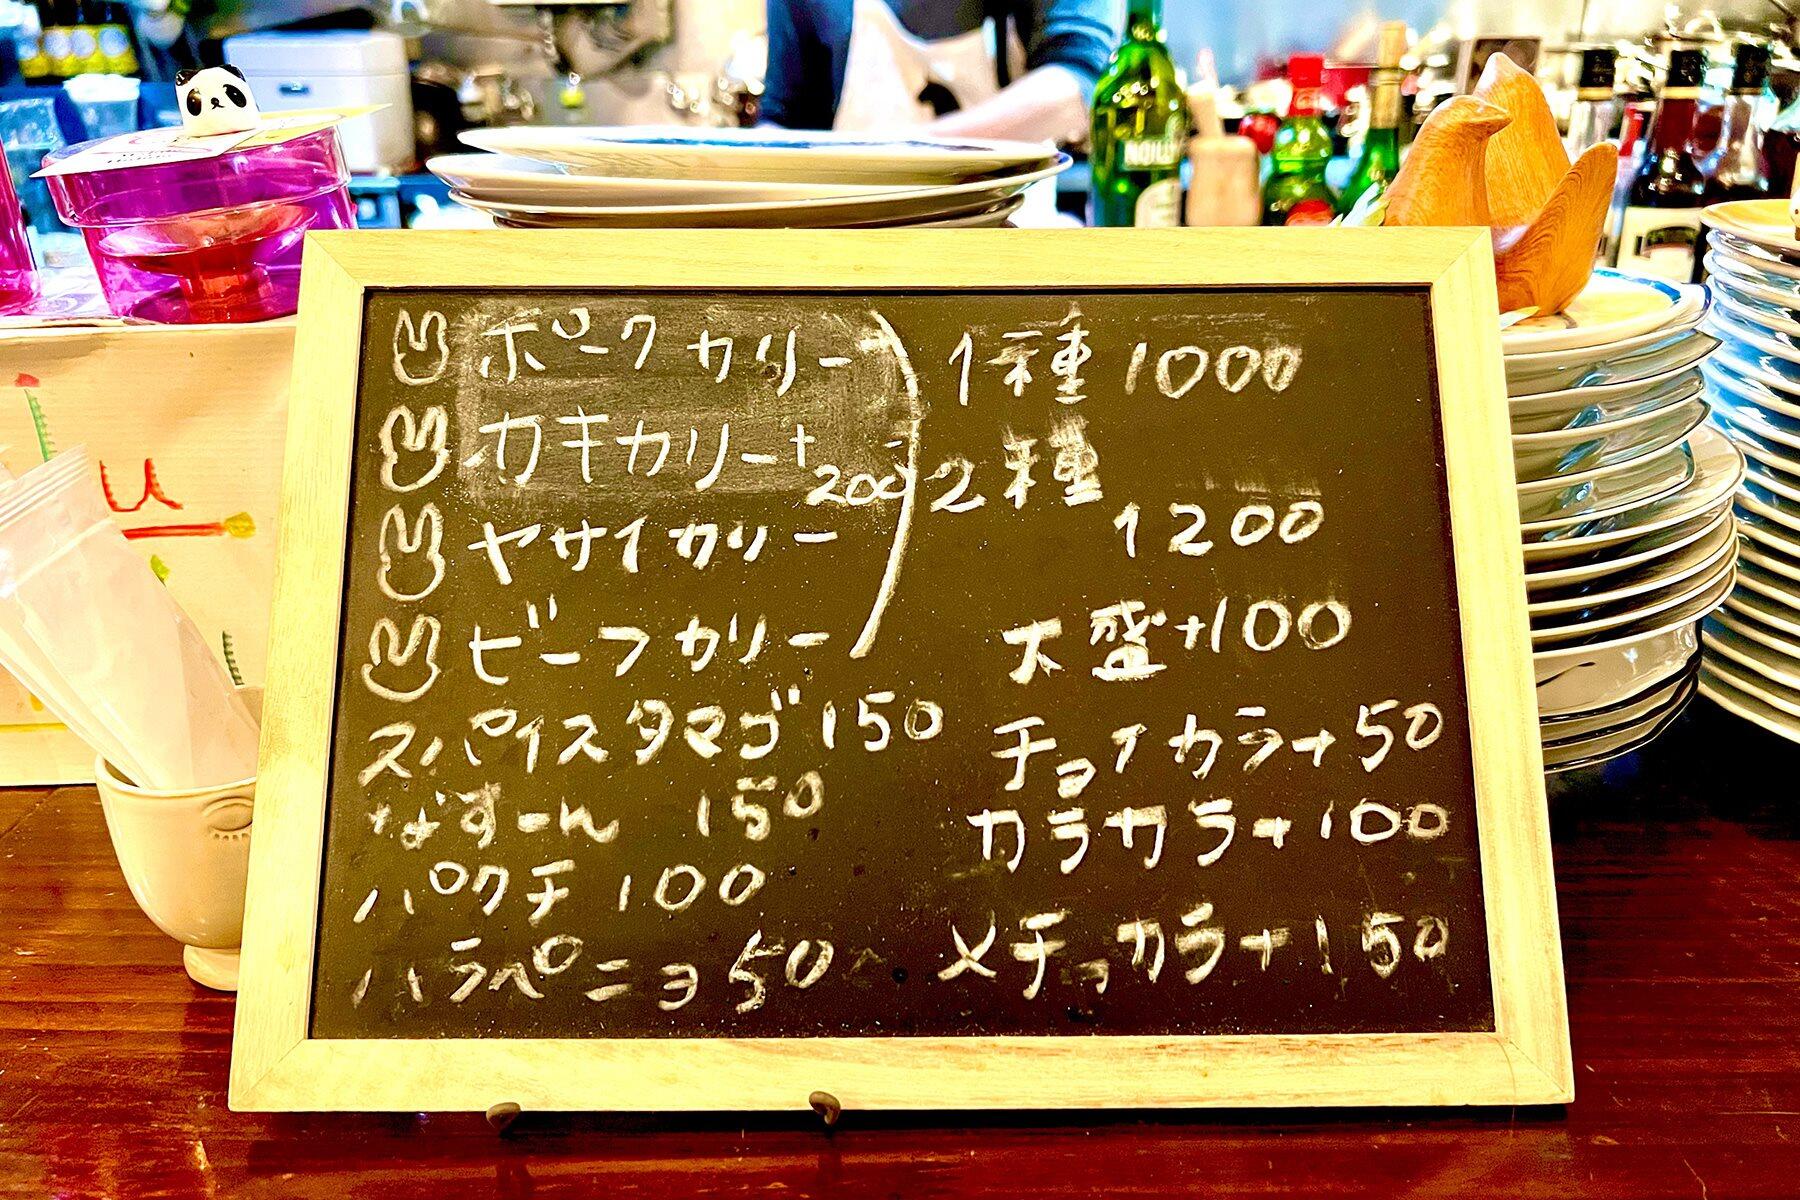 ポークカリー
カキカリー+200
ヤサイカリー
ビーフカリー
1種 1000
2種
1200
大盛+100
スパイスタマゴ 150
なすーん 150
パクチ 100
ハラペニョ 50
チョイカラ+50
カラカラ+100
メチャカラ+150
NOILLY
u